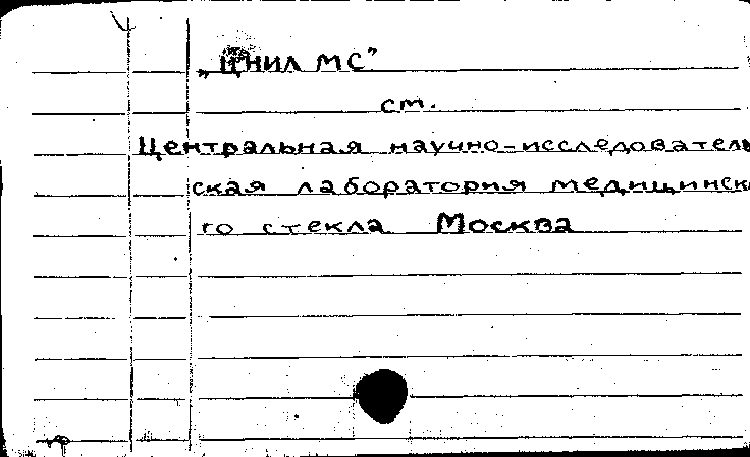 „ЦНИЛ МС"
ст.
Центральная научно-исследователь
ская лаборатория медицинско
го стекла Москва